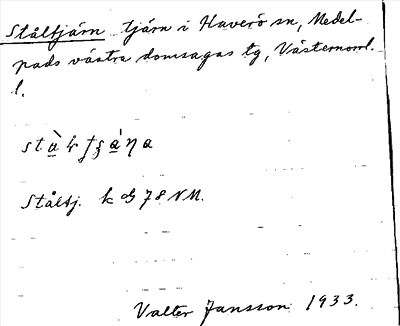 Ståltjärn tjärn i Haverö sn, Medel-
pads västra domsagas tg, Västernorrl.
l.
Ståltj. k
78 NM.
Valter Jansson 1933.